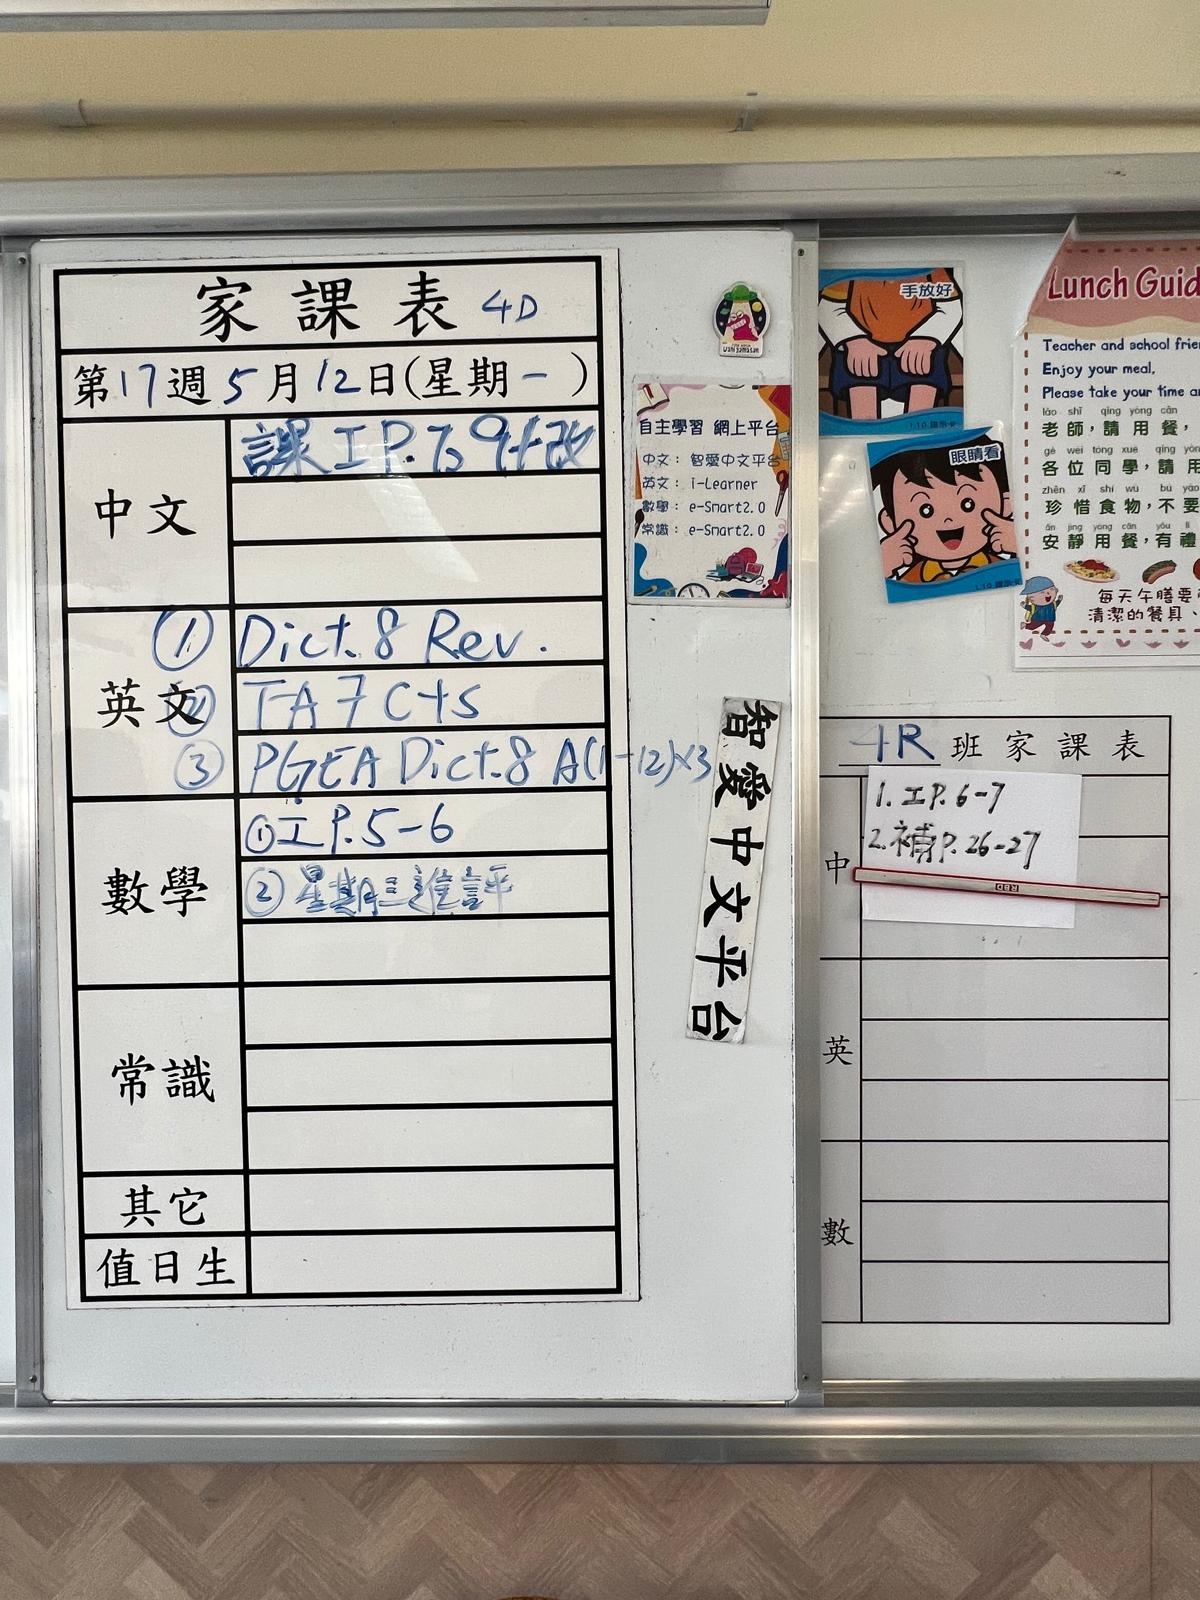 家課表 4D
第17週5月12日(星期一)
中文
課工P.7
英文
① Dict.8 Rev.
② TA7 Cts
③ PGEA Dict.8 A(1-12)×3
數學
①工P.5-6
②星期三進評
常識
其它
值日生
自主學習 網上平台
中文: 智愛中文平台
英文: i-Learner
數學: e-Smart2.0
常識: e-Smart2.0
智愛中文平台
手放好
眼睛看
Lunch Guid
Teacher and school frie
Enjoy your meal,
Please take your time a
lǎo shī qǐng yòng cān
老師,請用餐,
gè wèi tóng xué qǐng yòn
各位同學,請用
zhēn xī shí wù bú yào
珍惜食物,不要
ān jìng yòng cān yǒu lǐ
安靜用餐,有禮
每天午膳要
清潔的餐具、
4R 班家課表
中
1. 工P.6-7
2. 補P.26-27
RBD
英
數